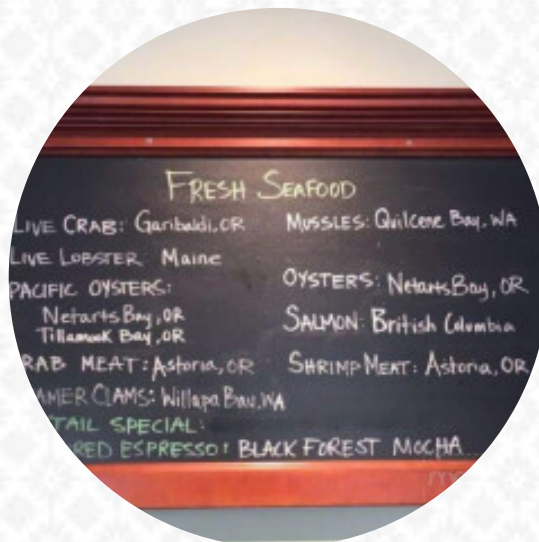 FRESH SEAFOOD
LIVE CRAB: Garibaldi, OR
LIVE LOBSTER Maine
PACIFIC OYSTERS:
Netarts Bay, OR
Tillamook Bay, OR
RAB MEAT: Astoria, OR
AMER CLAMS: Willapa Bay, WA
TAIL SPECIAL:
RED ESPRESSO: BLACK FOREST MOCHA
MUSSLES: Quilcene Bay, WA
OYSTERS: Netarts Bay, OR
SALMON: British Columbia
SHRIMP MEAT: Astoria, OR